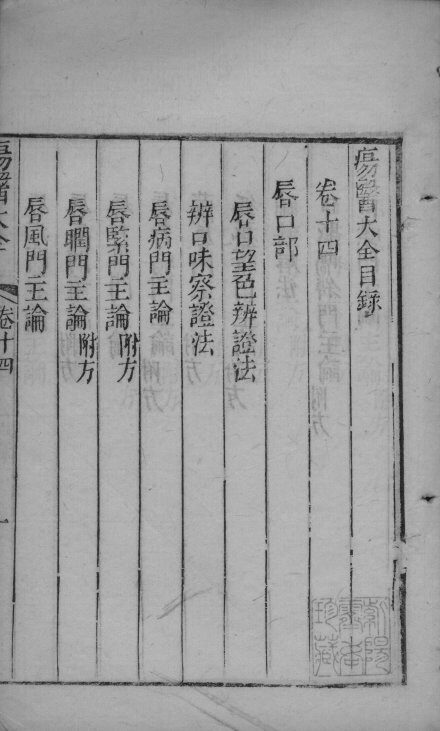 瘍醫大全目錄
卷十四
唇口部
唇口望色辨證法
辨口味察證法
唇病門主論
唇緊門主論附方
唇瞤門主論附方
唇風門主論
瘍醫大全
卷十四
一
珍藏